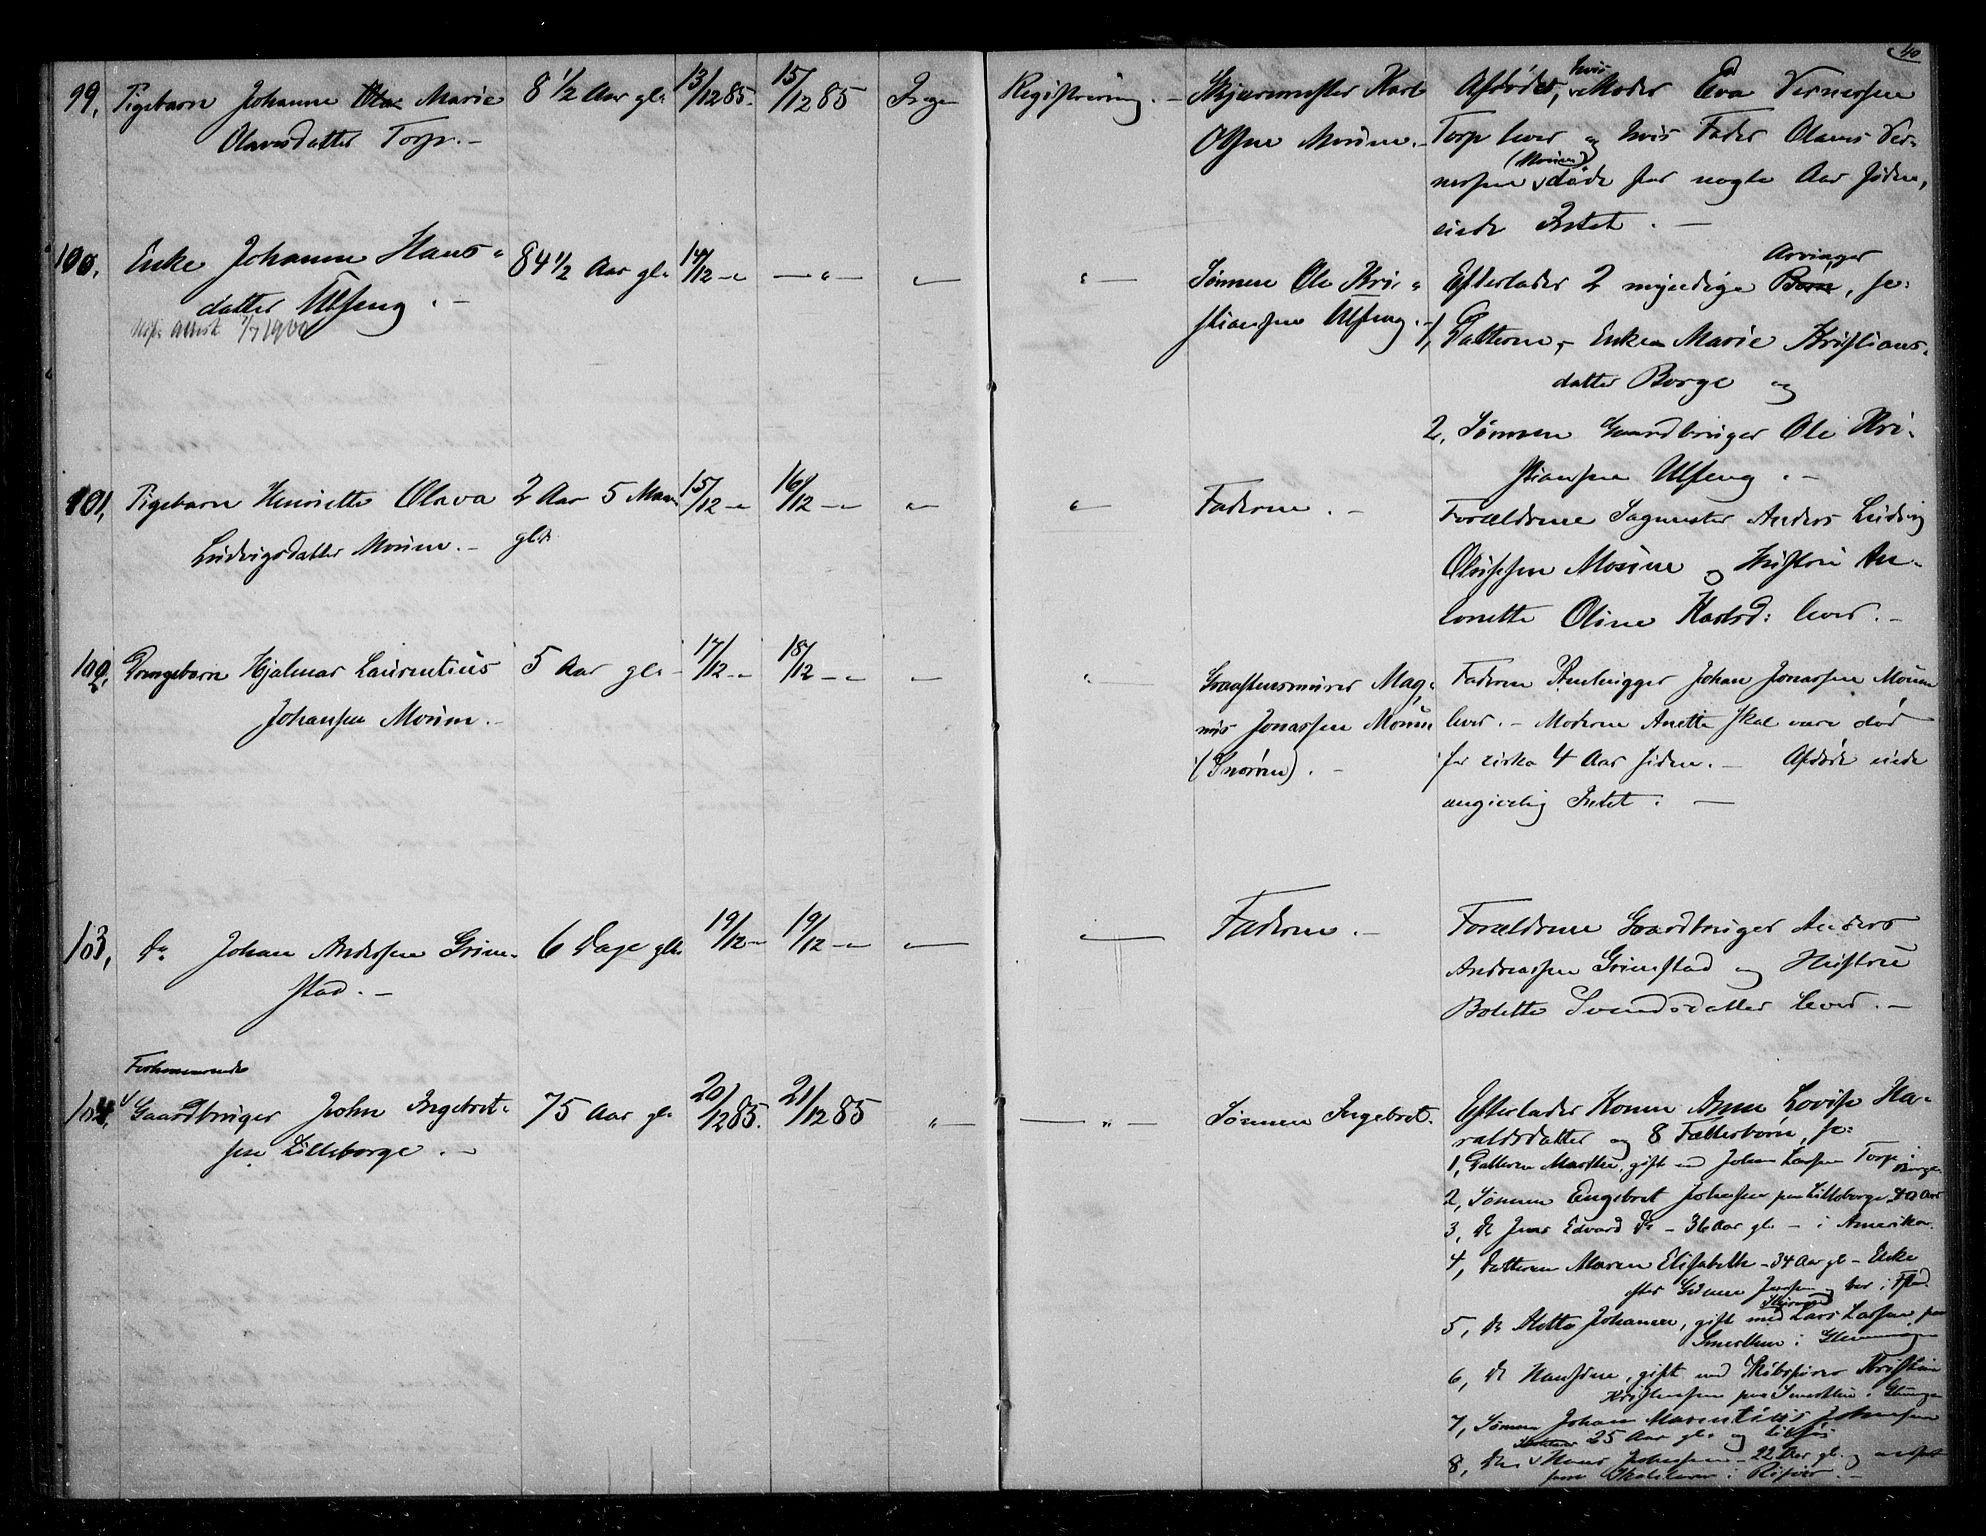 40
99. Pigebarn Johanne Marie
Olavesdatter Torp. -
8 1/2 Aar gl.
13/12 85.
15/12 85
Ingen
Registrering. -
Karl
Moum. -
Afdødes, hvis Moder Eva Vernersen
Torp lever og hvis Fader Olaves Ver-
nersen (Moum) døde for nogle Aar siden,
eiede Intet. -
100. Enke Johanne Hans-
datter Ulfeng. -
84 1/2 Aar gl.
14/12 - "
- " -
" -
" -
Sønnen Ole Kri-
stiansen Ulfeng. -
Efterlader 2 myndige Børn Arvinger, se:
1, Datteren, Enken Marie Kristians-
datter Borge og
2, Sønnen Gaardbruger Ole Kri-
stiansen Ulfeng. -
101, Pigebarn Henriette Olava
Ludvigsdatter Moum. -
2 Aar 5 Mdr.
gl.
15/12 - "
16/12 - "
" -
" -
Faderen. -
Forældrene Sagmester Anders Ludvig
Olsen Moum og Hustru An-
tonette Oline Karlsd: lever. -
102, Drengebarn Hjalmar Laurentius
Johansen Moum. -
5 Aar gl. -
17/12 - "
18/12 - "
" -
" -
Mag-
nus Jonassen Moum
. -
Faderen Stenhugger Johan Jonassen Moum
lever. - Moderen Anette skal være død
for cirka 4 Aar siden. - Afdøde eiede
angivelig Intet. -
103, do Johan Andersen Grim-
stad. -
6 Dage gl.
19/12 - "
19/12 - "
" -
" -
Faderen. -
Forældrene Gaardbruger Anders
Andreassen Grimstad og Hustru
Bolette Svendsdatter lever. -
104, Forhenværende
Gaardbruger John Ingebret-
sen Lilleborge. -
75 Aar gl.
20/12 85.
21/12 85
" -
- " -
Sønnen Ingebret.
Efterlader Konen Anne Lovise Ha-
raldsdatter og 8 Fællesbørn, se:
1, Datteren Marthe, gift med Johan Larsen Torp i Borge
2, Sønnen Engebret Johnsen paa Lilleborge 40 Aar
3, do Jens Edvard do - 36 Aar gl. - i Amerika.
4, Datteren Maren Elisabeth - 34 Aar gl - Enke
efter bor i Fstad.
5, do Johanne, gift med Lars Larsen paa
Smertun i Glemminge
6, do Hansine, gift med Skibsfører Kristian
Kristensen paa Smertun i Glemminge
7, Sønnen Johan Marentius Johnsen
25 Aar gl. og
8, do Hans Johnsen 22 Aar gl. og
som i Risør. -